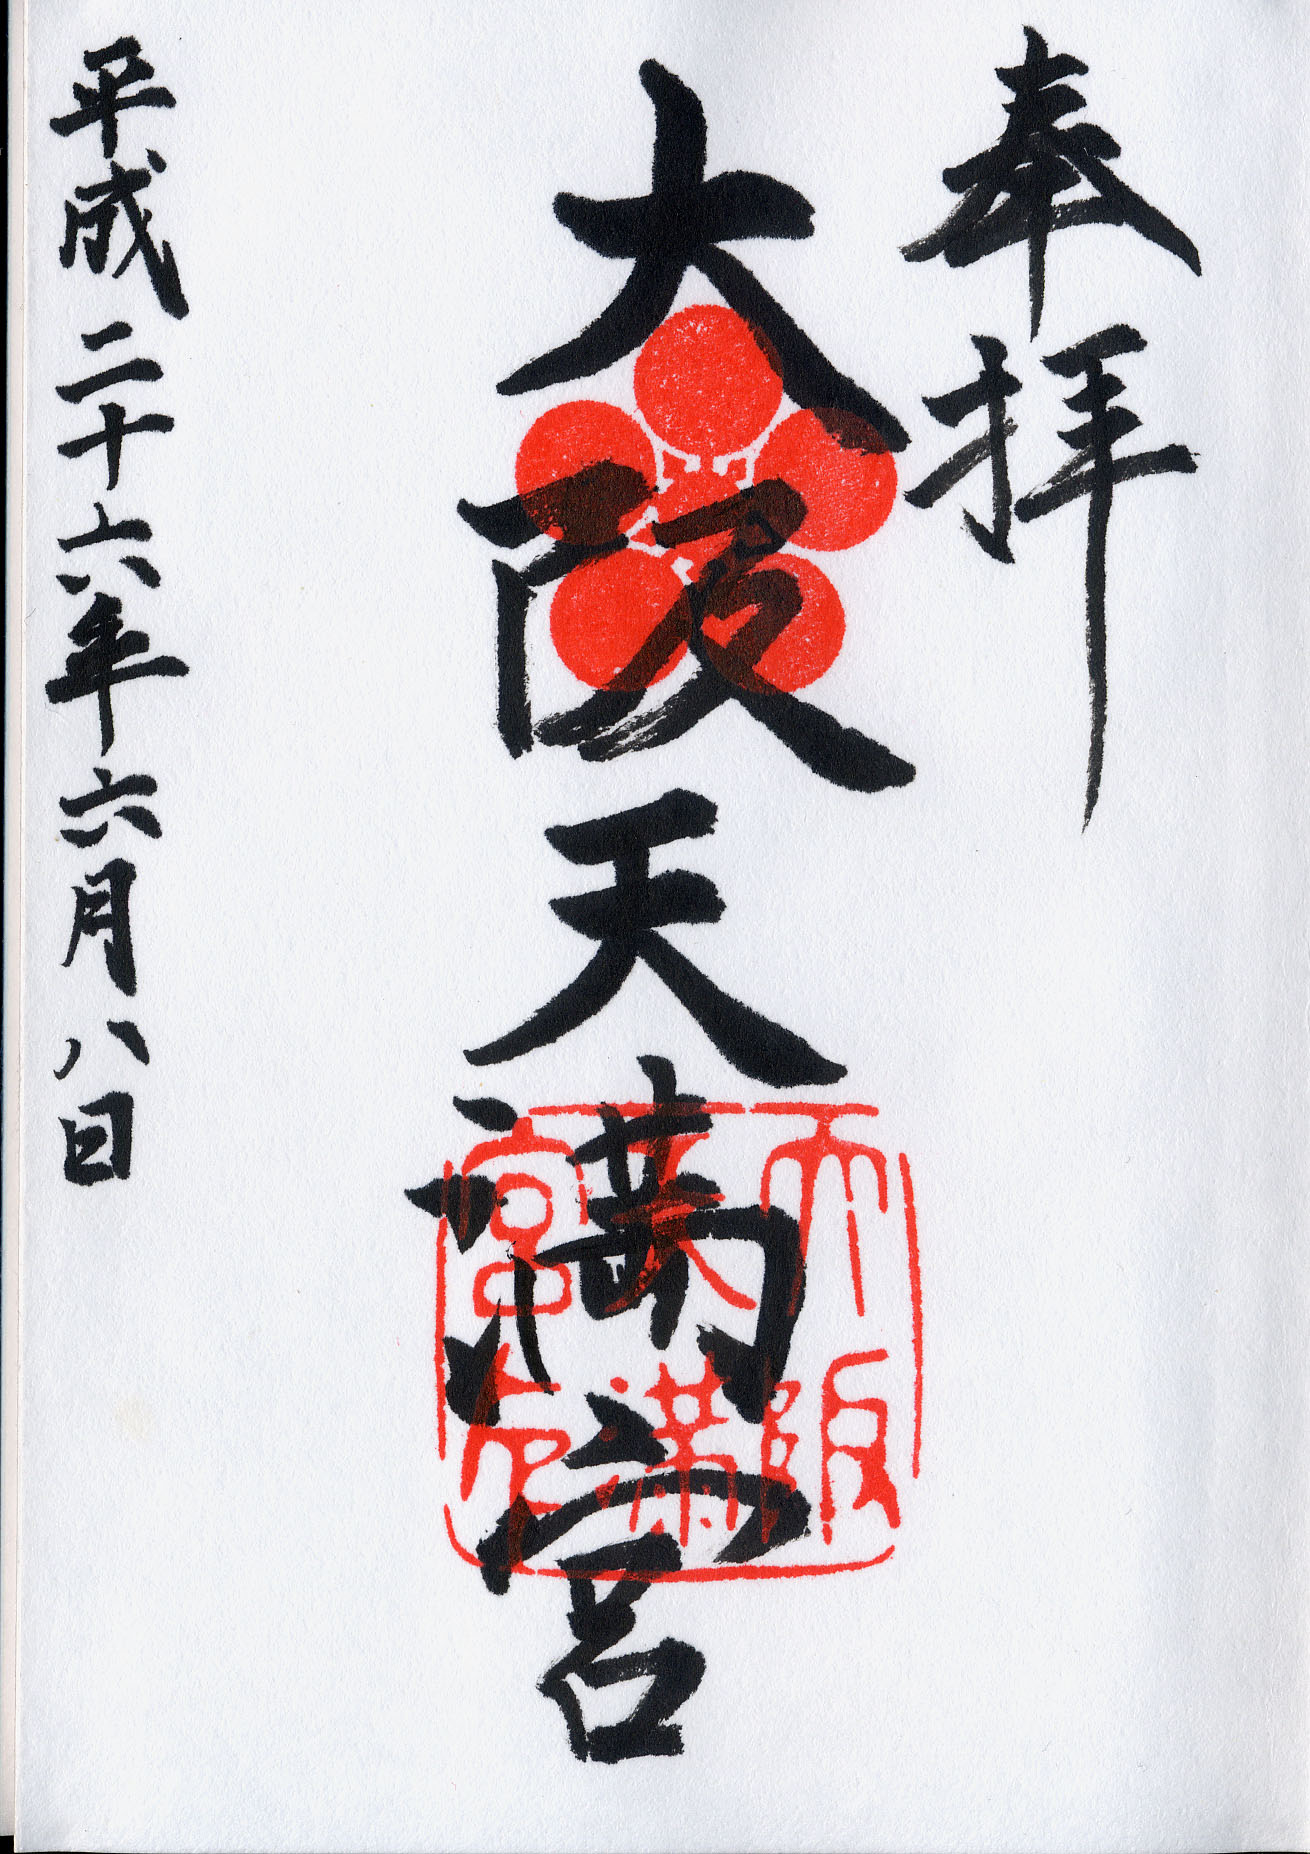 奉拝
大阪天満宮
大阪
天満
宮印
平成二十六年六月八日